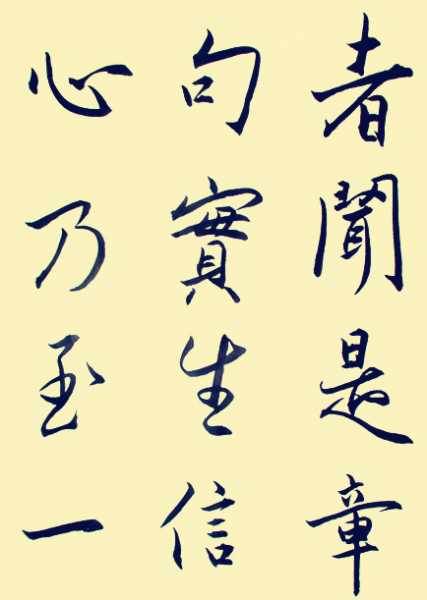 者聞是章
句實生信
心乃至一